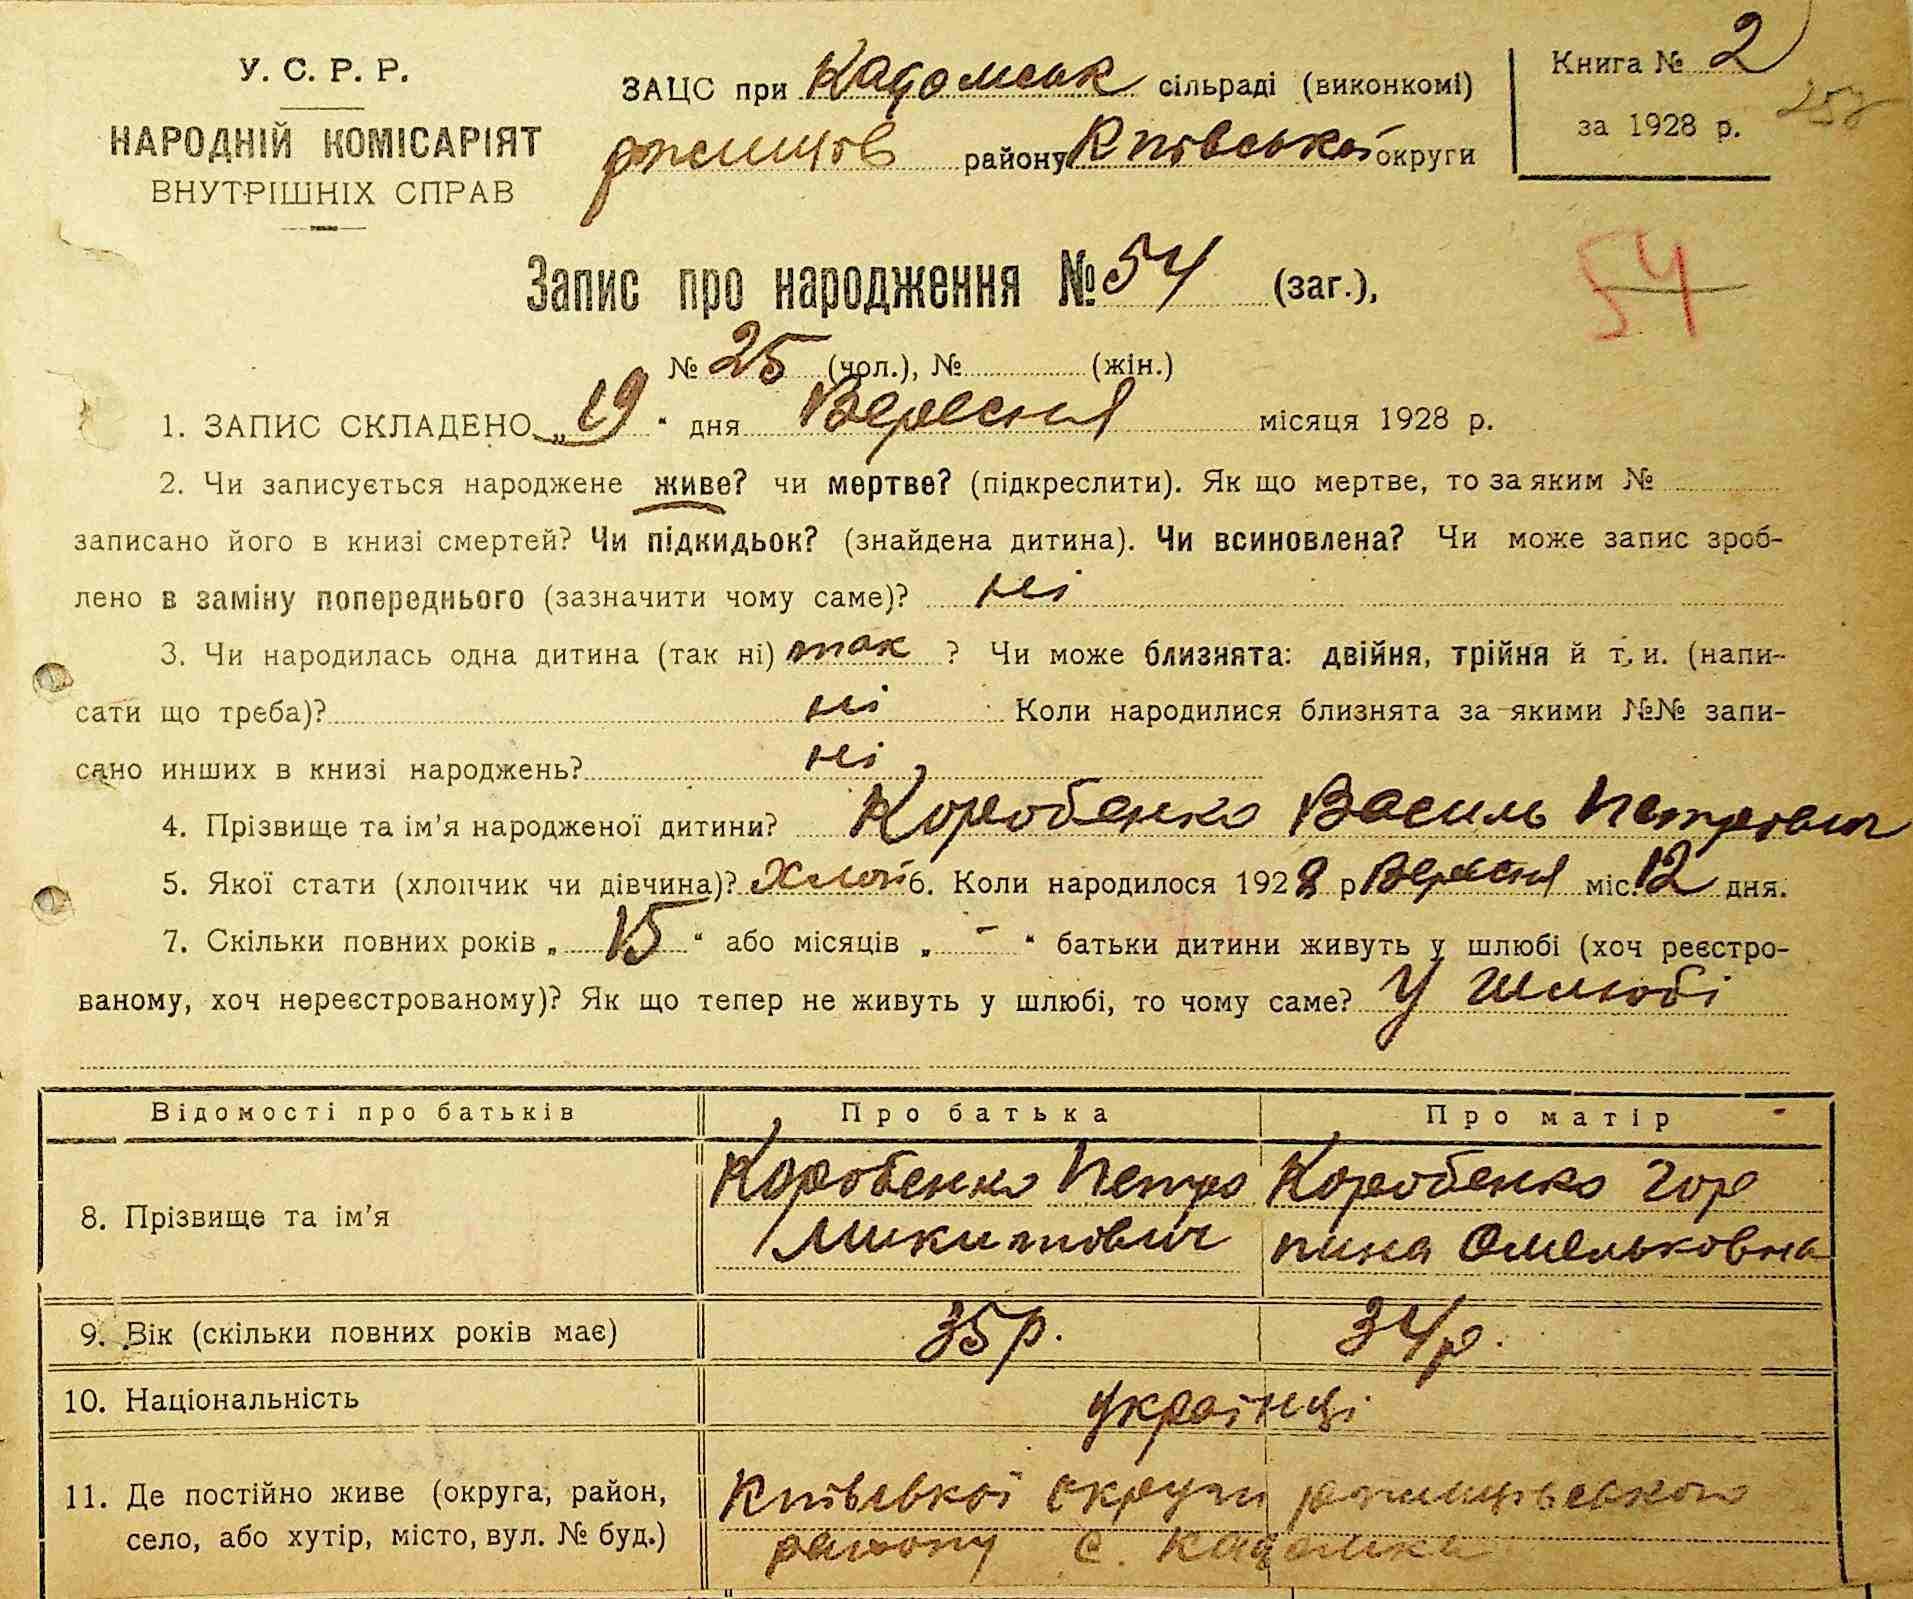 У. С. Р. Р.
НАРОДНІЙ КОМІСАРІЯТ
ВНУТРІШНІХ СПРАВ
ЗАЦС при Кадомськ сільраді (виконкомі)
ржищов району Київської округи
Книга № 2
за 1928 р.
258
Запис про народження № 54 (заг.),
54
№ 25 (чол.), № (жін.)
1. ЗАПИС СКЛАДЕНО „19“ дня Вересня місяця 1928 р.
2. Чи записується народжене живе? чи мертве? (підкреслити). Як що мертве, то за яким №
записано його в книзі смертей? Чи підкидьок? (знайдена дитина). Чи всиновлена? Чи може запис зроб-
лено в заміну попереднього (зазначити чому саме)? ні
3. Чи народилась одна дитина (так ні) так ? Чи може близнята: двійня, трійня й т. и. (напи-
сати що треба)? ні Коли народилися близнята за якими №№ запи-
сано инших в книзі народжень? ні
4. Прізвище та ім'я народженої дитини? Коробенко Василь Петрович
5. Якої стати (хлопчик чи дівчина)? Хлоп 6. Коли народилося 1928 р Вересня міс. 12 дня.
7. Скільки повних років „15“ або місяців „-“ батьки дитини живуть у шлюбі (хоч реєстро-
ваному, хоч нереєстрованому)? Як що тепер не живуть у шлюбі, то чому саме? У шлюбі
Відомості про батьків Про батька Про матір
8. Прізвище та ім'я
Коробенко Петро
Микитович
Коробенко Гор
пина Омельковна
9. Вік (скільки повних років має) 35 р. 34 р.
10. Національність українці
11. Де постійно живе (округа, район,
село, або хутір, місто, вул. № буд.)
Київської округи ржищівського
району с. Кадомка